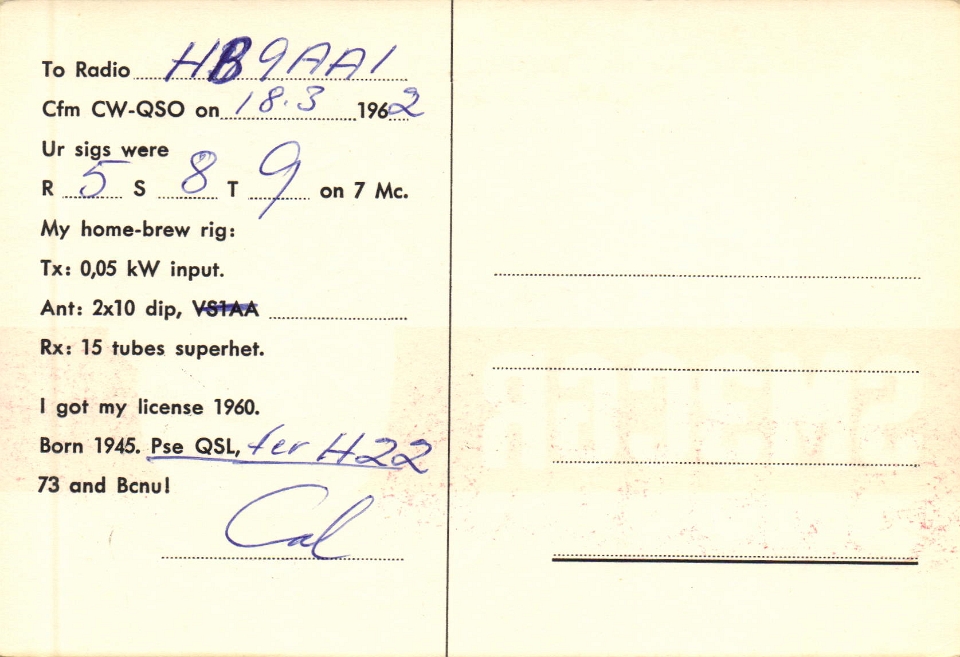 To Radio HB9AAI
Cfm CW-QSO on 18.3 1962
Ur sigs were
R 5 S 8 T 9 on 7 Mc.
My home-brew rig:
Tx: 0,05 kW input.
Ant: 2x10 dip, VS1AA
Rx: 15 tubes superhet.
I got my license 1960.
Born 1945. Pse QSL, fer H22
73 and Bcnu!
Cal